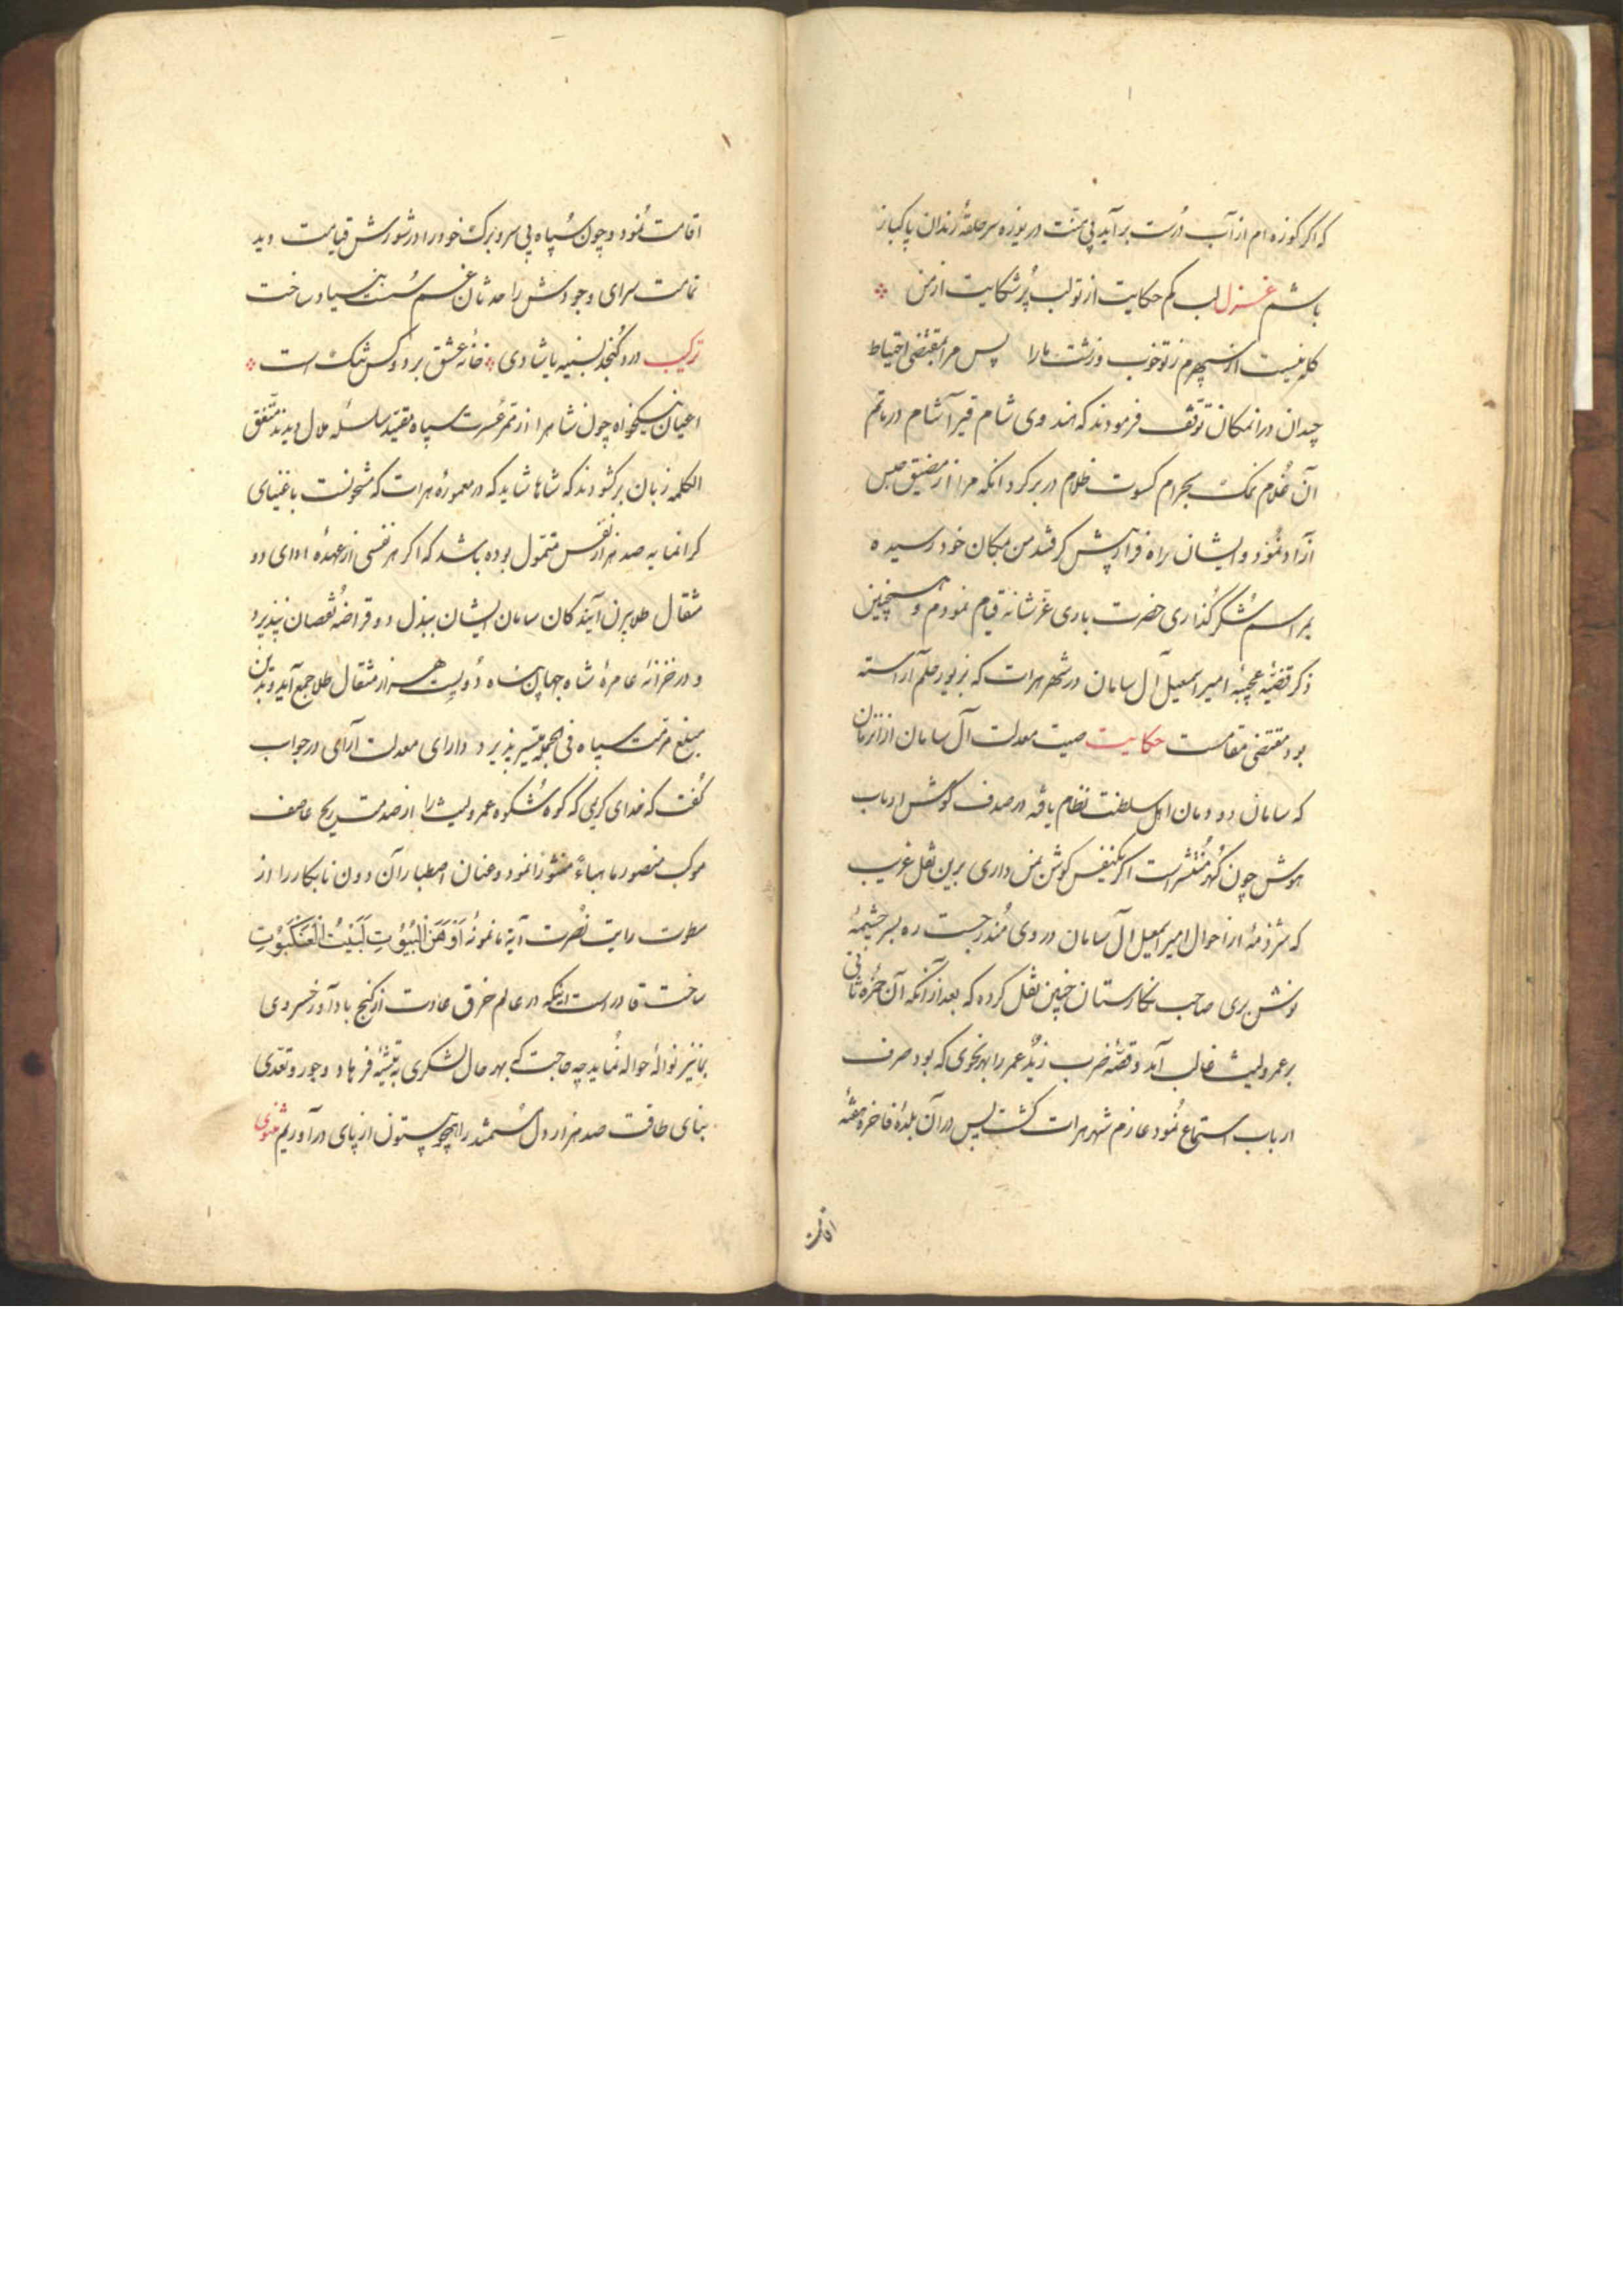 که اگر کوزه ام از آب درست برآید بی منت دریوزه سر حلقهٔ رندان پاکباز
باشم غزل لب کم حکایت از تو لب پر شکایت از من
کله نیست از سپهرم ز تو خوب و زشت ما را پس مرا بمقتضی احتیاط
چندان در انمکان توقف فرمودند که هندوی شام قیرآشام در ماتم
آن غلام نمک بحرام کسوت ظلام در بر کرد انکه مرا از مضیق حبس
آزاد نمود و ایشان راه فرار پیش کرفتند من بمکان خود رسیده
بمراسم شکرگذاری حضرت باری عز شانه قیام نمودم و همچنین
ذکر قضیهٔ عجیبهٔ امیر اسمعیل آل سامان در شهر هرات که بزیور حلم آراسته
بود مقتضی مقامست حکایت صیت معدلت آل سامان از انزمان
که سامان دودمان اهل سلطنت نظام یافه در صدف کوش ارباب
هوش چون کهر منتشر است اکر یکنفس کوش بمن داری برین نقل غریب
که شرذمهٔ از احوال امیر اسمعیل آل سامان در وی مندرجست ره بسرچشیمهٔ
نوش بری صاحب نکارستان چنین نقل کرده که بعد از آنکه آن حمزه ثانی
بر عمرولیث غالب آمد و قصهٔ ضرب زید عمر را بهر نحوی که بود صرف
ارباب استماع نمود عازم شهر هرات کشت پس در آن بلدهٔ فاخره هفتهٔ
اقامت
اقامت نمود و چون سپاه بی سر و برک خود را در شورش قیامت دید
تمامت سرای وجودش را حدثان غم سست بنیاد ساخت
ترکیب درد کنجد بسینه یا شادی خانه عشق بر دو کس تنک است
اعیان نیکخواه چون شاهرا از تمر عسرت سپاه مقید سلسله ملال دیدند متفق
الکلمه زبان برکشودند که شاها شاید که در معموره هرات که مشحونست باغنیای
کرانمایه صد هزار نفس متمول بوده باشد که اکر هر نفسی از عهدهٔ ادای دو
مثقال طلا برن آیند کان سامان ایشان ببذل دو قراضه نقصان نپذیرد
و در خزانهٔ عامرهٔ شاه جهان پناه دویست هزار مثقال طلا جمع آید و بدین
مبلغ مرمت سپاه فی الجمله تیسیر پذیرد دارای معدلت آرای در جواب
کفت که خدای کریمی که کوه شکوه عمرولیث را از صدمت ریح عاصف
موکب منصور ما هباءً منثورا نمود و عنان اصطبار آن دون نابکار را از
سطوت رایت نصرت آیة ما نمونهٔ اَوْهَنَ الْبُیُوْتِ لَبَیْتُ الْعَنْکَبُوْتِ
ساخت قادر است اینکه در عالم خرق عادت از کنج بادآورد خسروی
بما نیز نوالهٔ حواله نماید چه حاجت که بهر حال لشکری به تیشهٔ فرهاد و جور و تعدی
بنای طاقت صد هزار دل مستمند را همچو بیستون از پای درآوریم مثنوی